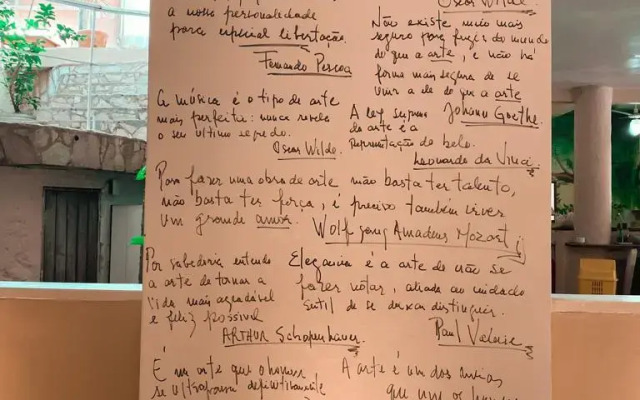 a nossa personalidade
para especial libertação.
Fernando Pessoa
Oscar Wilde.
Não existe meio mais
seguro para fugir do mundo
do que a arte, e não há
forma mais segura de se
unir a ele do que a arte
Johann Goethe.
A música é o tipo de arte
mais perfeita: nunca revela
o seu último segredo.
Oscar Wilde.
A lei suprema
da arte é a
representação do belo.
Leonardo da Vinci
Para fazer uma obra de arte não basta ter talento,
não basta ter força, é preciso também viver
um grande amor. Wolfgang Amadeus Mozart
Por sabedoria entendo
a arte de tornar a
vida mais agradável
e feliz possível
ARTHUR Schopenhauer.
Elegância é a arte de não se
fazer notar, aliada ao cuidado
sutil de se deixar distinguir.
Paul Valérie
É em arte que o homem
se ultrapassa definitivamente
A arte é um dos meios
que une os homens